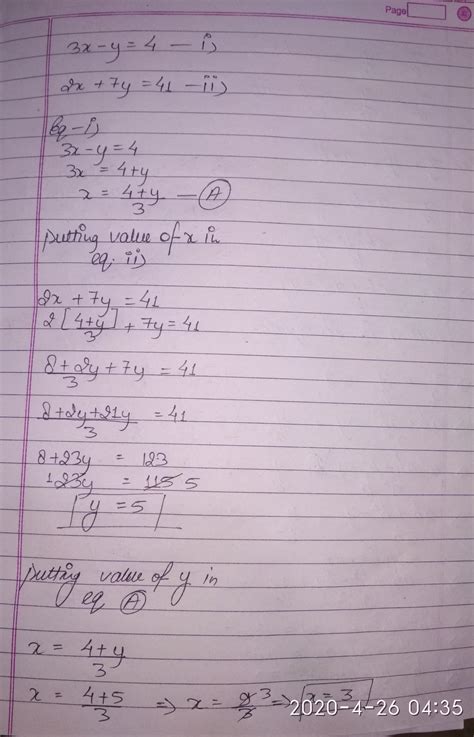 Page
3x - y = 4 — i)
2x + 7y = 41 — ii)
Eq - i)
3x - y = 4
3x = 4+y
x = 4+y/3 — (A)
putting value of x in
eq. ii)
2x + 7y = 41
2[4+y/3] + 7y = 41
8+2y/3 + 7y = 41
8+2y+21y/3 = 41
8+23y = 123
123y = 115 5
y = 5
putting value of y in
eq (A)
x = 4+y/3
x = 4+5/3 ⇒ x = 9 3/3 ⇒ x = 3
2020-4-26 04:35